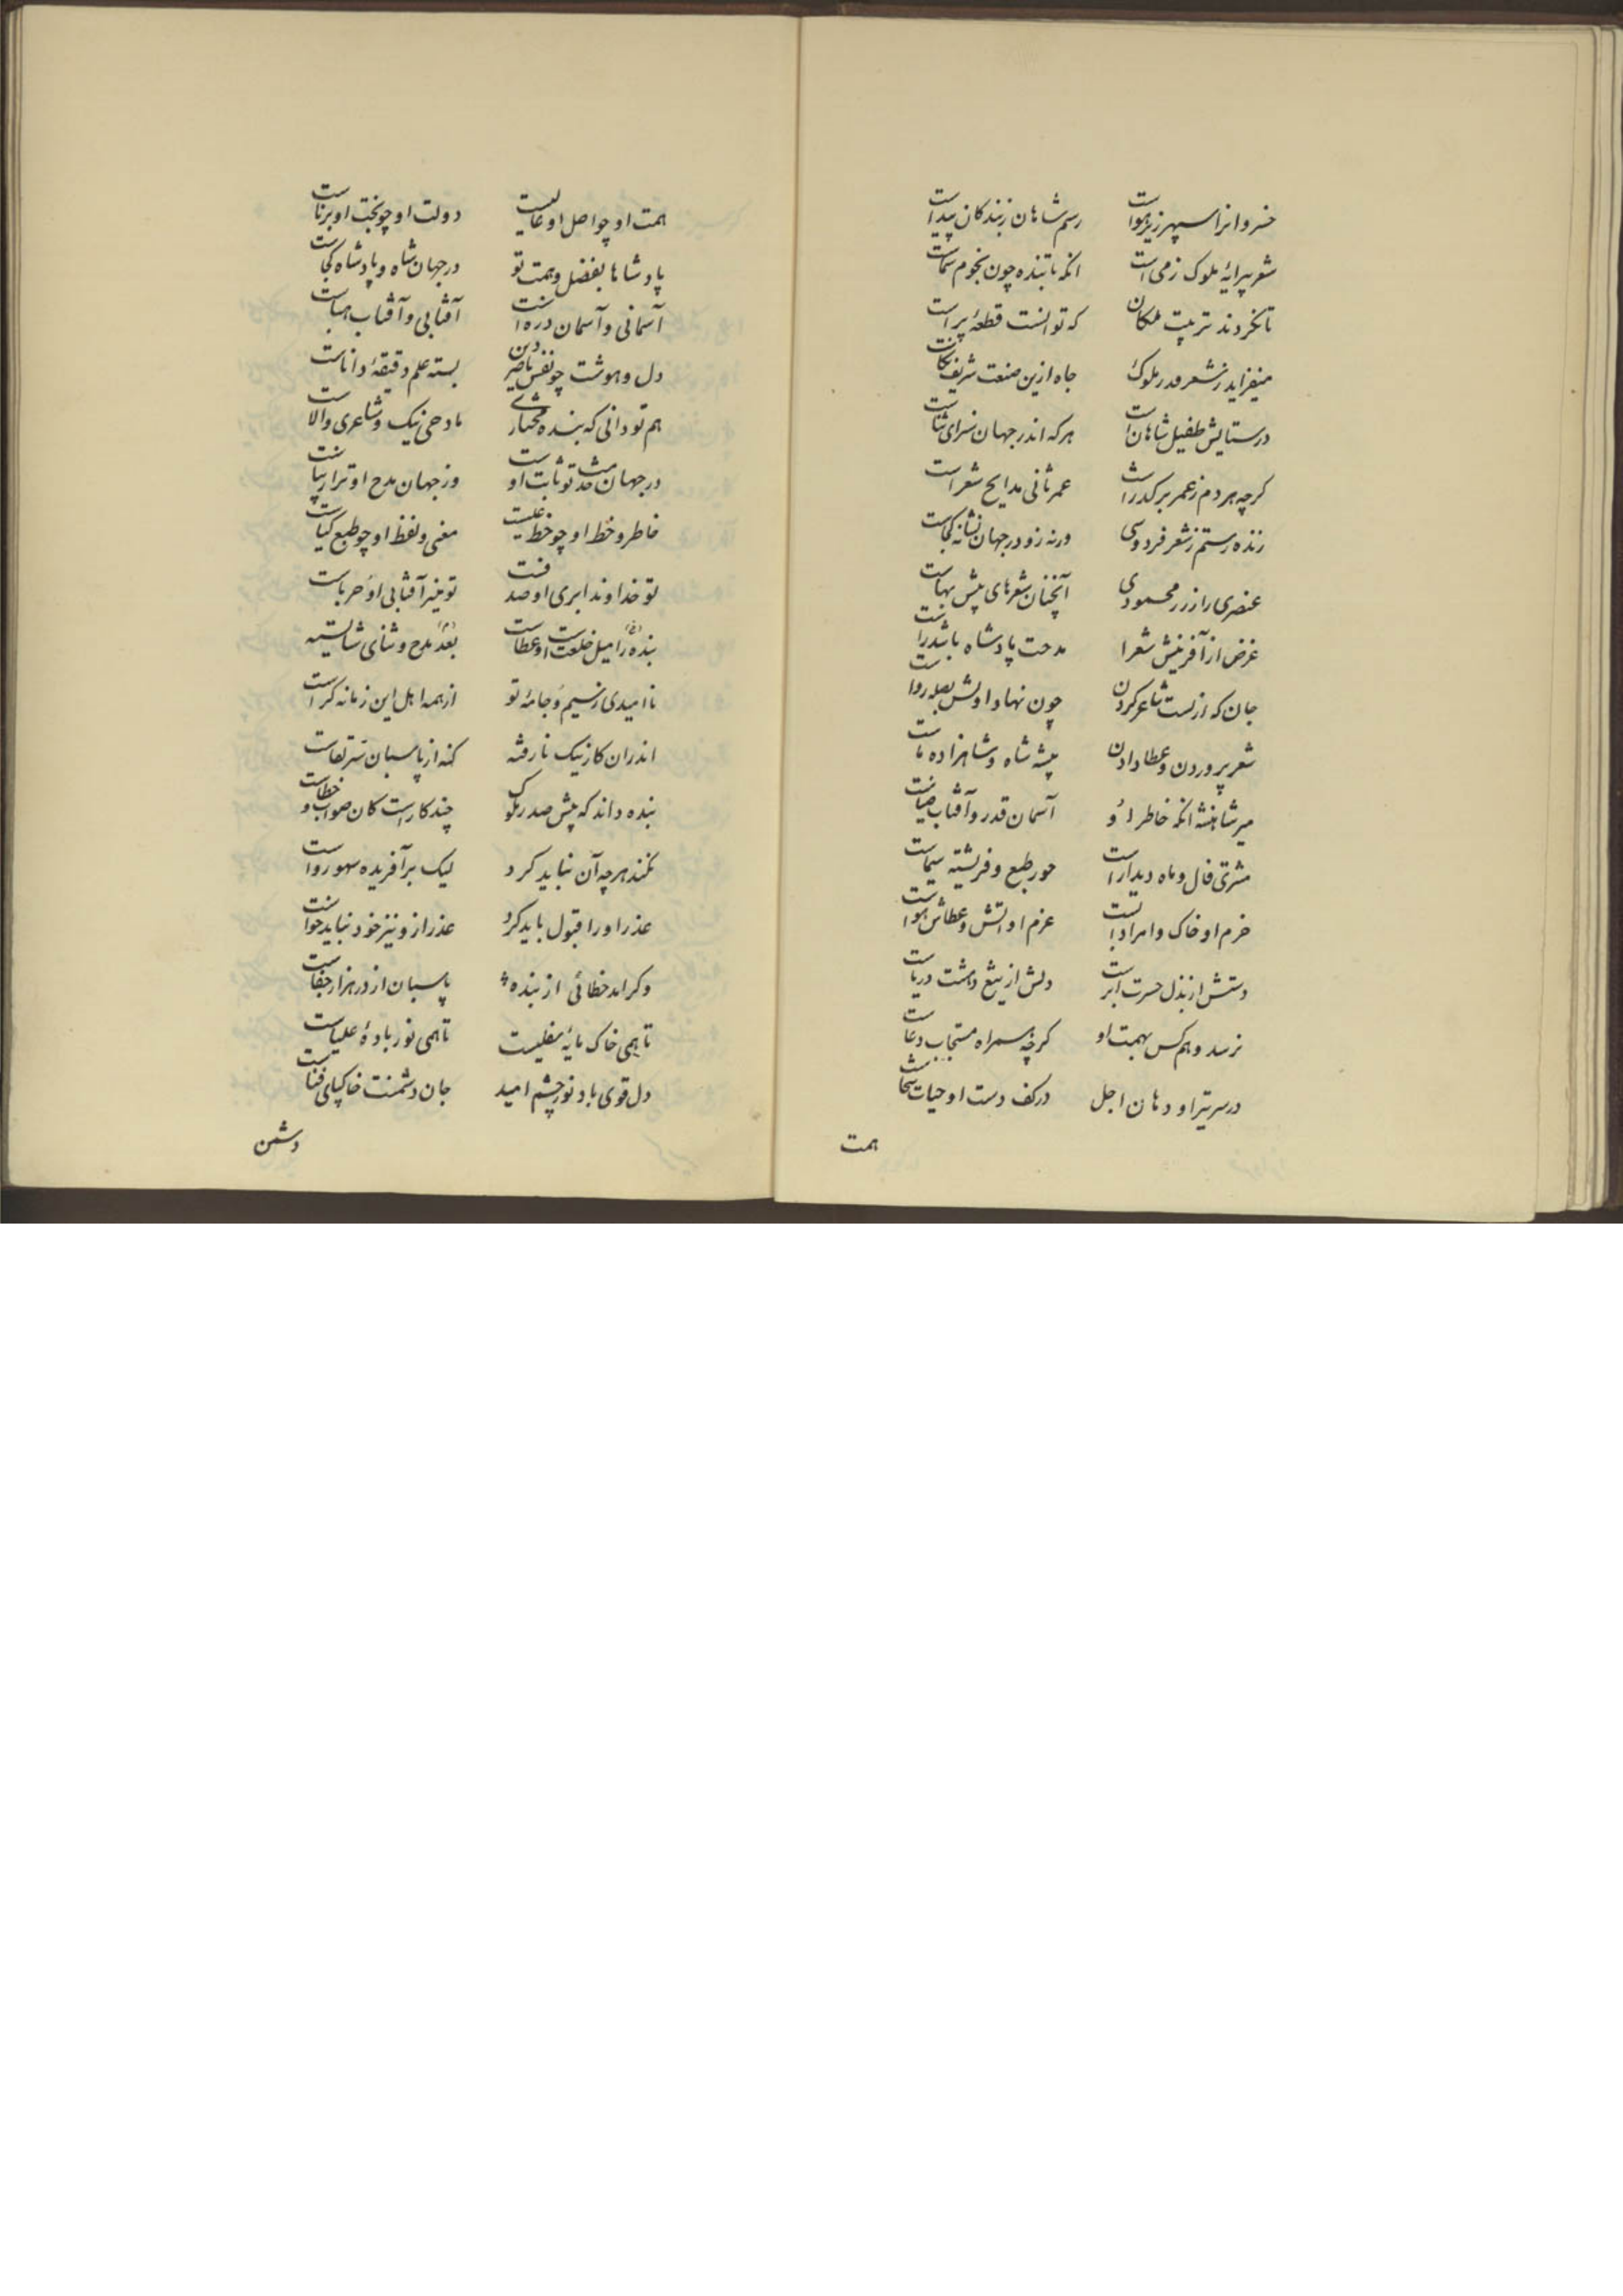 خسروانرا سپهر زیر هواست رسم شاهان ز بندکان پیداست
شعر پیرایهٔ ملوک زمی است انکه تابنده چون نجوم سماست
تا نکردند تربیت ملکان که توانست قطعهٔ پیراست
میفزاید ز شعر قدر ملوک جاه ازین صنعت شریف نکاست
در ستایش طفیل شاهان است هرکه اندر جهان سزای ثناست
کرچه هر دم ز عمر برکذراست عمر ثانی مدایح شعراست
زنده رستم ز شعر فردوسی ورنه زو در جهان نشانه کجاست
عنصری را ز زر محمودی آنچنان شعرهای پیش بهاست
غرض از آفرینش شعرا مدحت پادشاه باشد راست
جان که ازتست شاعر کردن چون نهاد اولش بصله رواست
شعر پروردن و عطا دادن پیشه شاه و شاهزاده ماست
میرشاهنشه انکه خاطر او آسمان قدر و آفتاب ضیاست
مشتری فال و ماه دیدار است حور طبع و فریشته سیماست
حزم او خاک و امر او آبست عزم او اتش و عطاش هواست
دستش از بذل حسرت ابر است دلش از تیغ دهشت دریاست
نرسد وهم کس بهمت او کرچه همراه مستجاب دعاست
در سر تیر او دهان اجل در کف دست او حیات سخاست
همت
همت او چو اصل او عالیست دولت او چو بخت او برناست
پادشاها بفضل و همت تو در جهان شاه و پادشاه کجاست
آسمانی و آسمان دره است آفتابی و آفتاب هباست
دل و هوشت چو نفس ناصر دین بسته علم و دقیقهٔ داناست
هم تو دانی که بنده مختاری مادحی نیک و شاعری والاست
در جهان خدمت تو ثابت اوست وز جهان مدح او ترا زیباست
خاطر و خط او چو خط غیبست معنی و لفظ او چو طبع کیاست
تو خداوند ابری او صدفست تو نیز آفتابی او حرباست
بنده را میل خلعت است او عطاست بعد مدح و ثنای شایسته
ناامیدی ز سیم و جامهٔ تو از همه اهل این زمانه کراست
اندران کار نیک نارفته کنه از پاسبان سر تقاست
بنده داند که پیش صدر ملوک چند کار است کان صواب و خطاست
نکند هرچه آن نباید کرد لیک بر آفریده سهو رواست
عذر او را قبول باید کرد عذر ازو نیز خود نباید خواست
وکر امد خطائی از بنده پاسبان از در هزار جفاست
تا همی خاک مایهٔ سفلیست تا همی نور بادهٔ علیاست
دل قوی باد نور چشم امید جان دشمنت خاکپای فناست
دشمن